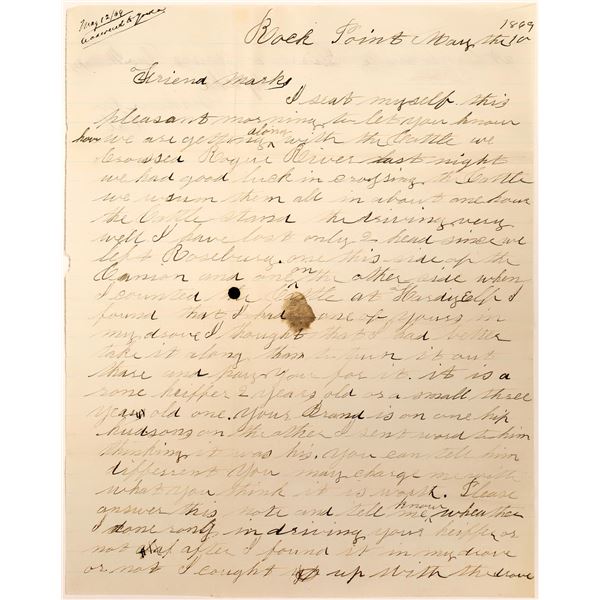 May 12/69
answered & yes
1869
Rock Point May the 10
Friend Marks
I seat myself this
pleasant morning to let you know
how we are getting along with the Cattle we
Crossed Rogue River last night
we had good luck in crossing the Cattle
we swum them all in about one hour
the Cattle stand the driving very
well I have lost only 2 head since we
left Roseburg. one this side of the
Canion and one on the other side when
I counted the Cattle at Hardy Elf I
found that I had one of yours in
my drove I thought that I had better
take it along than to turn it out
thare and pay you for it. it is a
rone heiffer 2 years old or a small three
years old one. your Brand is on one hip
hudsons on the other I sent word to him
thinking it was his. you can tell him
different you may charge me with
what you think it is worth. Please
answer this note and tell me know whether
I done rong in driving your heiffer or
not after I found it in my drove
or not I caught up with the drove